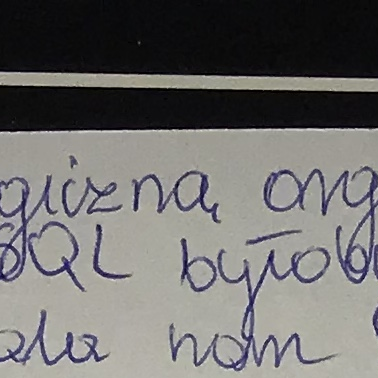 giczną, org
SQL byłob
ala nam